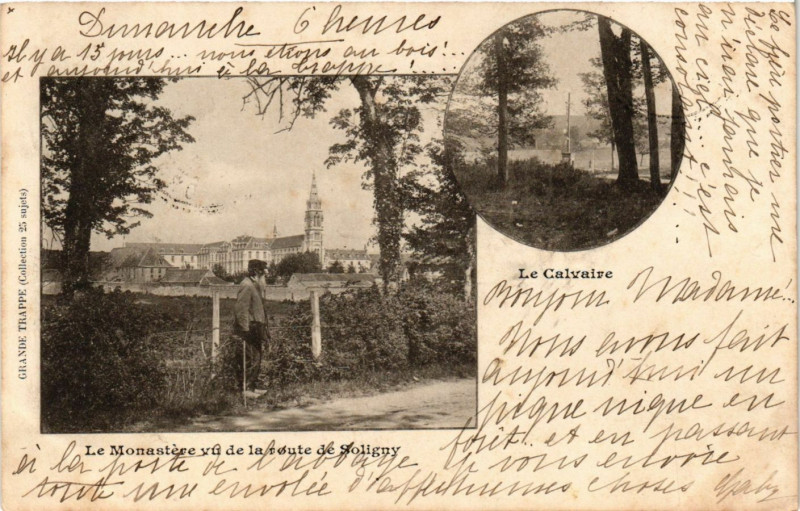 Dimanche 6 heures
Il y a 15 jours... nous étions au bois!...
et aujourd'hui à la Trappe!...
Le frère portier me
déclare que je
n'irai jamais
au ciel... c'est
consolant!...
GRANDE TRAPPE (Collection 25 sujets)
Le Calvaire
Bonjour Madame!...
Nous avons fait
aujourd'hui un
pique nique en
forêt et en passant
Le Monastère vu de la route de Soligny
à la porte de l'abbaye je vous envoie
toute une envolée d'affectueuses choses